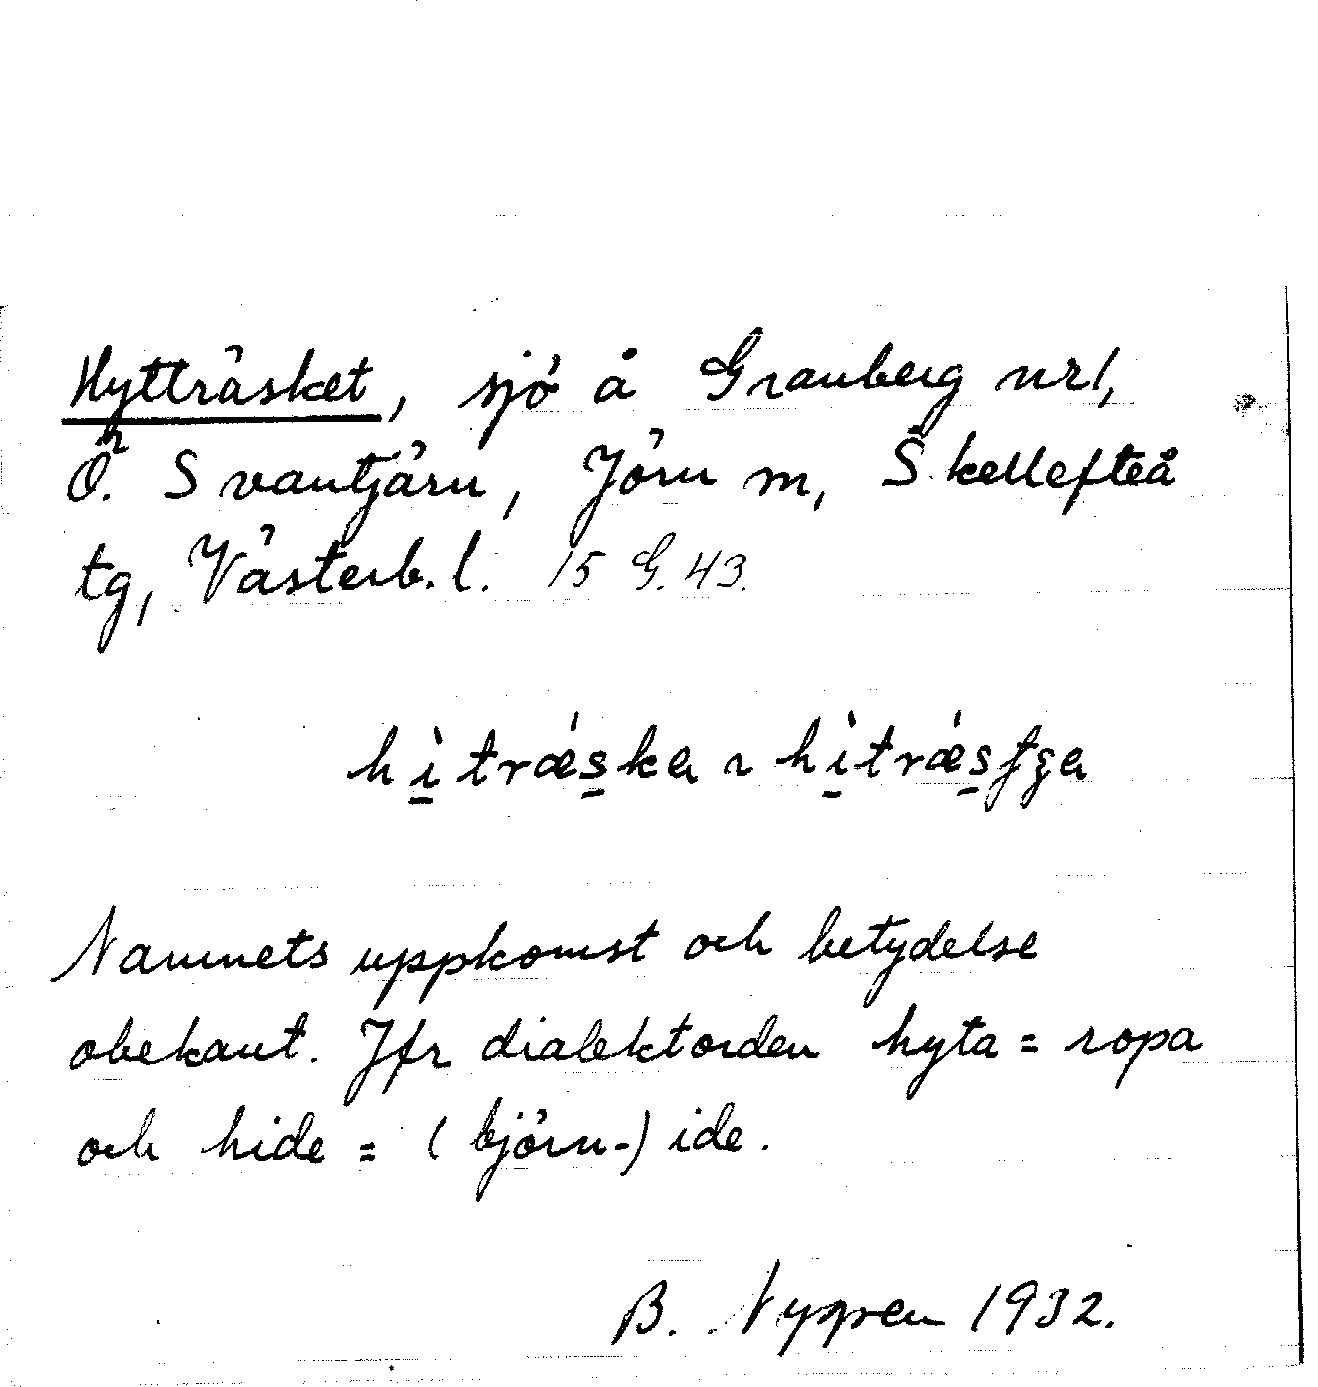 Hytträsket, sjö å Granberg nr 1,
Ö. Svantjärn, Jörn m, Skellefteå
tg, Västerb. l. 15 G. 43.
hìtrǽska ~ hìtrǽsʃʒa
Namnets uppkomst och betydelse
obekant. Jfr dialektorden hyta = ropa
och hide = (björn-) ide.
B. Nygren 1932.